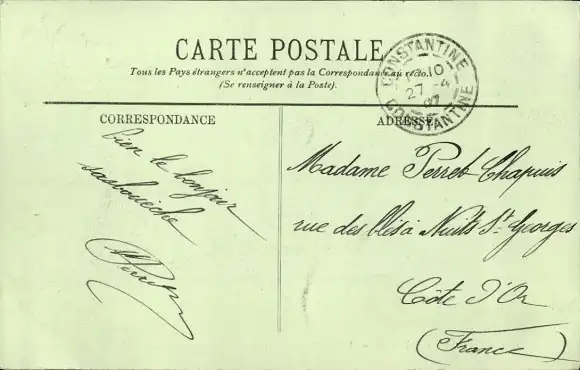 CARTE POSTALE
Tous les Pays étrangers n'acceptent pas la Correspondance au recto.
(Se renseigner à la Poste).
CONSTANTINE
10
27 -4
07
CONSTANTINE
CORRESPONDANCE
ADRESSE
bien le bonjour
Madame Perret-Chapuis
rue des à Nuits St Georges
Côte d'Or
(France)